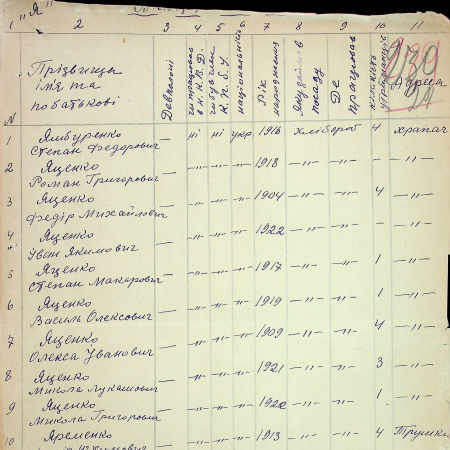 "Я"
1 2 3 4 5 6 7 8 9 10 11
N Прізвища ім'я та по батькові
національність
Рік народження
посаду
Де працював
Адреса
239
1 Ямбуренко Степан Федорович — ні ні укр. 1916 хлібороб — 4 храпач
2 Яценко Роман Григорович — -"- -"- -"- 1918 -"- -"- - -"-
3 Яценко Федір Михайлович — -"- -"- -"- 1904 -"- -"- 4 -"-
4 Яценко Іван Якимович — -"- -"- -"- 1922 -"- -"- - -"-
5 Яценко Степан Макарович — -"- -"- -"- 1917 -"- -"- 1 -"-
6 Яценко Василь Олексович — -"- -"- -"- 1919 -"- -"- 1 -"-
7 Яценко Олекса Уванович — -"- -"- -"- 1909 -"- -"- 4 -"-
8 Яценко Микола Лукашович — -"- -"- -"- 1921 -"- -"- 3 -"-
9 Яценко Микола Григорович — -"- -"- -"- 1922 -"- -"- 1 -"-
10 Яременко — -"- -"- -"- 1913 -"- -"- 4